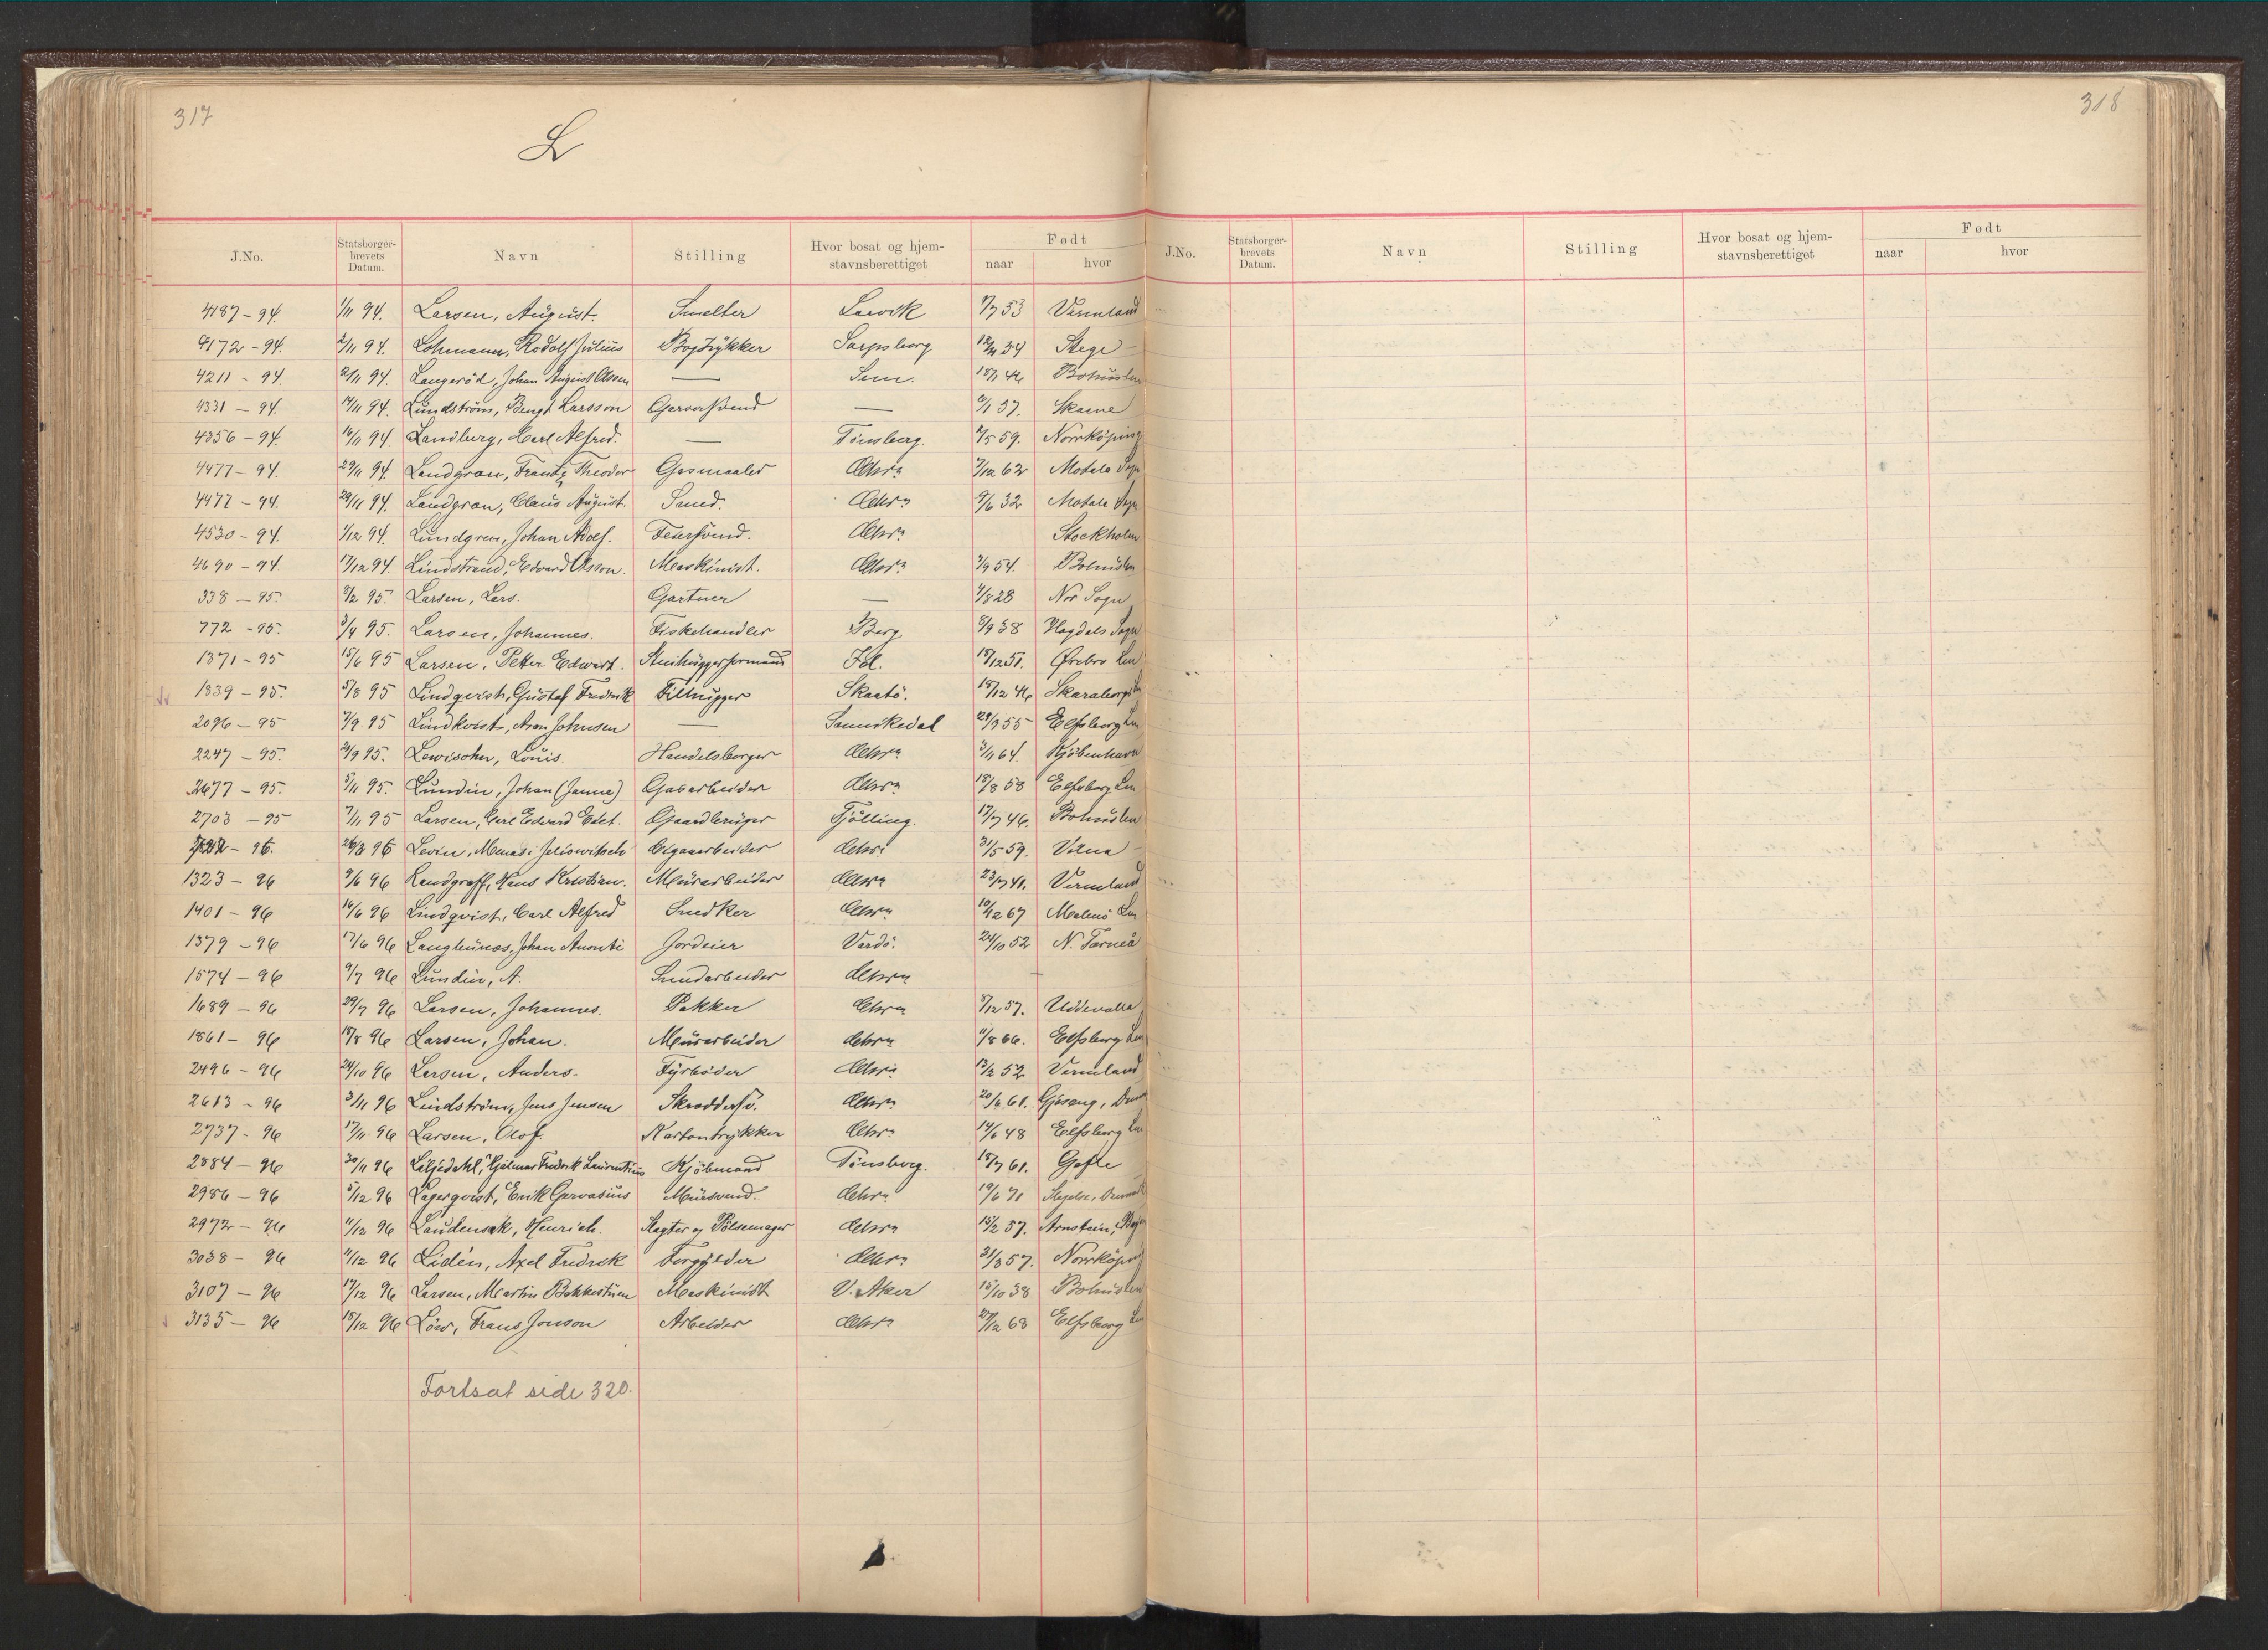 317
L
J.No. Statsborger-brevets Datum. Navn Stilling Hvor bosat og hjem-stavnsberettiget Født naar hvor
4187 – 94. 1/11 94. Larsen, August. Smelter Larvik 1/7 53 Vermland
4172 – 94. 2/11 94. Lohmann, Rodolf Julius Bogtrykker Sarpsborg 34 Stege
4211 – 94. 2/11 94. Langeröd, Johan August Olssen — Sem. 46 Bohuslen
4331 – 94. 14/11 94. Lundström, Bengt Larsson Garversvend — 9/1 37. Skaane
4356 – 94. 16/11 94. Landberg, Carl Alfred. — Tönsberg. 59. Norrköping
4477 – 94. 29/11 94. Landgran, Frantz Theodor Gasmaaler Chra 7/12 62 Motala Sogn
4477 – 94. 29/11 94. Landgran, Claus August. Smed. Chra 9/6 32 Motala Sogn
4530 – 94. 1/12 94. Lundgren, Johan Adolf. Feiersvend. Chra Stockholm
4690 – 94. 17/12 94. Lindstrand, Edvard Olsson. Maskinist. Chra 3/9 54. Bohuslen
338 – 95. 8/2 95. Larsen, Lars. Gartner — 7/8 28 Nor Sogn
772 – 95. 3/4 95. Larsen, Johannes. Fiskehandler Berg 8/9 38 Hogdals Sogn
1371 – 95 15/6 95 Larsen, Petter Edvart. Stenhuggerformand Id. 18/12 51. Örebro Len
1839 – 95. 5/8 95 Lindqvist, Gustaf Fredrik Filhugger Skaatö. 15/12 46 Skaraborgs Len
2096 – 95 7/9 95 Lindkvist, Aron Johnsen — Sannikedal 29/9 55 Elfsborg Len
2247 – 95. 21/9 95. Lewisohn, Louis. Handelsborger Chra 3/11 64. Kjöbenhavn
2677 – 95. 5/11 95. Lundin, Johan (Janne) Gasarbeider Chra 18/8 58 Elfsborg Len
2703 – 95 7/11 95 Larsen, Carl Edvard Edet. Gaardbruger Tjölling. 17/7 46. Bohuslen
– 96. 26/3 96 Levin, Menasi Jeliowitsch Cigararbeider Chra 31/5 59. Vilna
1323 – 96 9/6 96 Landgraff, Hans Kristian. Murarbeider Chra 23/7 41. Vermland
1401 – 96 16/6 96 Lindqvist, Carl Alfred Snedker Chra 10/12 67 Malmö Len
1379 – 96 17/6 96 Langhunas, Johan Anonti Jordeier Vardö. 24/10 52 N. Torneå
1574 – 96 9/7 96 Lundin, A. Smedarbeider Chra —
1689 – 96 29/7 96 Larsen, Johannes. Pakker Chra 8/12 57. Uddevalla
1861 – 96 18/8 96 Larsen, Johan. Murarbeider Chra 11/8 66. Elfsborg Len
2496 – 96 24/10 96 Larsen, Anders. Fyrböder Chra 13/2 52 Vermland
2613 – 96 3/11 96 Lindström, Jens Jensen Skræddersv. Chra 20/6 61. Gjeseng,
2737 – 96 17/11 96 Larsen, Olof. Kartontrykker Chra 14/6 48 Elfsborg Len
2884 – 96 30/11 96 Liljedahl, Hjalmar Fredrik Laurentius Kjöbmand Tönsberg. 18/7 61. Gefle
2986 – 96 5/12 96 Lagerqvist, Erik Gervasius Mursvend. Chra 19/6 71
2972 – 96 11/12 96 Laudensak, Henrich. Slagter og Pölsemager Chra 15/2 57. Arnstein,
3038 – 96 11/12 96 Lidén, Axel Fredrik Forgylder Chra 31/3 57. Norrköping
3107 – 96 17/12 96 Larsen, Martin Bakkestuen Maskinist V. Aker 15/10 38 Bohuslen
3135 – 96 18/12 96 Löw, Frans Jonson Arbeider Chra 27/12 68 Elfsborg Len
Fortsat side 320.
318
J.No. Statsborger-brevets Datum. Navn Stilling Hvor bosat og hjem-stavnsberettiget Født naar hvor